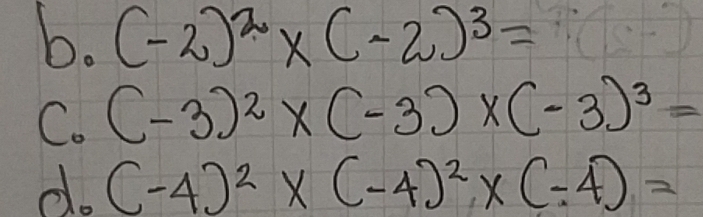 b. (-2)² × (-2)³ =
c. (-3)² × (-3) × (-3)³ =
d. (-4)² × (-4)² × (-4) =